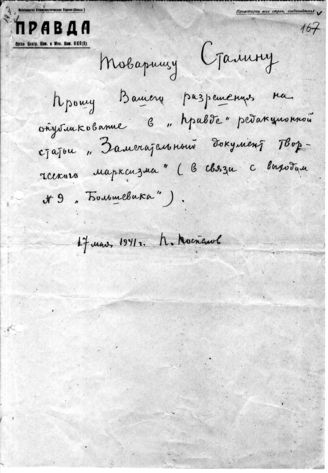 Пролетарии всех стран, соединяйтесь!
167
ПРАВДА
Орган Центр. Ком. и Моск. Ком. ВКП(б)
Товарищу Сталину
Прошу Вашего разрешения на
опубликование в „Правде" редакционной
статьи „Замечательный документ твор-
ческого марксизма" (в связи с выходом
№ 9 „Большевика").
17 мая 1941 г. П. Поспелов